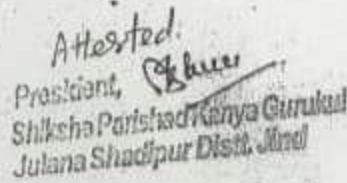 Attested.
President,
Shiksha Parishad Kanya Gurukul
Julana Shadipur Distt. Jind